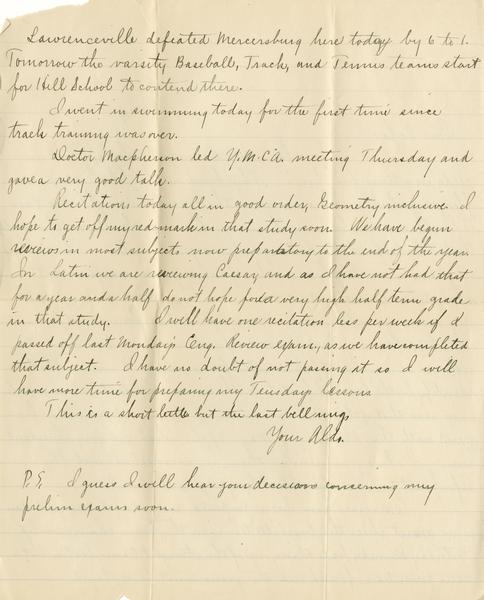 Lawrenceville defeated Mercersburg here today by 6 to 1.
Tomorrow the varsity Baseball, Track, and Tennis teams start
for Hill School to contend there.
I went in swimming today for the first time since
track training was over.
Doctor Macpherson led Y.M.C.A. meeting Thursday and
gave a very good talk.
Recitations today all in good order, Geometry inclusive. I
hope to get off my red-mark in that study soon. We have begun
reviews in most subjects now preparatory to the end of the year.
In Latin we are reviewing Caesar and as I have not had that
for a year and a half do not hope for a very high half term grade
in that study. I will have one recitation less per week if I
passed off last Monday's Eng. Review exam., as we have completed
that subject. I have no doubt of not passing it so I will
have more time for preparing my Tuesdays lessons
This is a short letter but the last bell rung,
Your Aldo.
P.S. I guess I will hear your decisions concerning my
prelim exams soon.